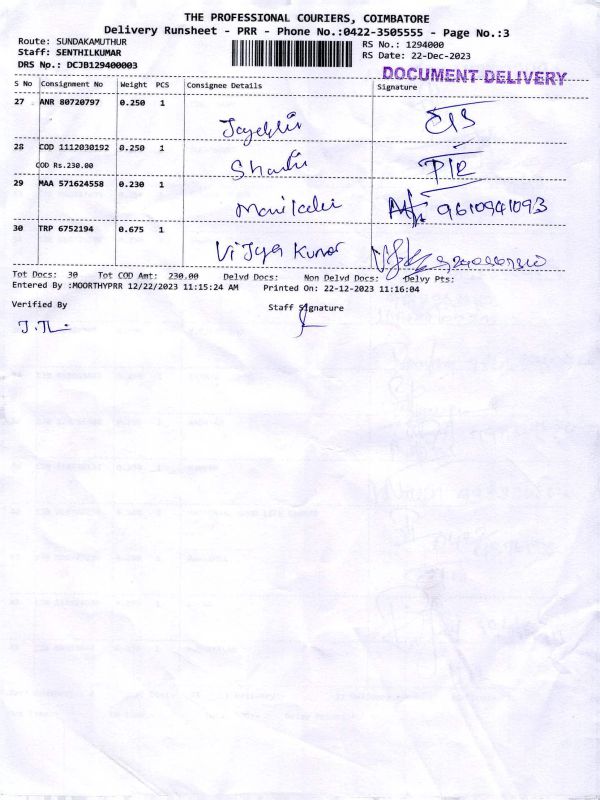 THE PROFESSIONAL COURIERS, COIMBATORE
Delivery Runsheet - PRR - Phone No.:0422-3505555 - Page No.:3
Route: SUNDAKAMUTHUR RS No.: 1294000
Staff: SENTHILKUMAR RS Date: 22-Dec-2023
DRS No.: DCJB129400003
DOCUMENT DELIVERY
S No Consignment No Weight PCS Consignee Details Signature
27 ANR 80720797 0.250 1
28 COD 1112030192 0.250 1
COD Rs.230.00
29 MAA 571624558 0.230 1
9610941093
30 TRP 6752194 0.675 1
Vijya Kumar
Tot Docs: 30 Tot COD Amt: 230.00 Delvd Docs: Non Delvd Docs: Delvy Pts:
Entered By :MOORTHYPRR 12/22/2023 11:15:24 AM Printed On: 22-12-2023 11:16:04
Verified By Staff Signature